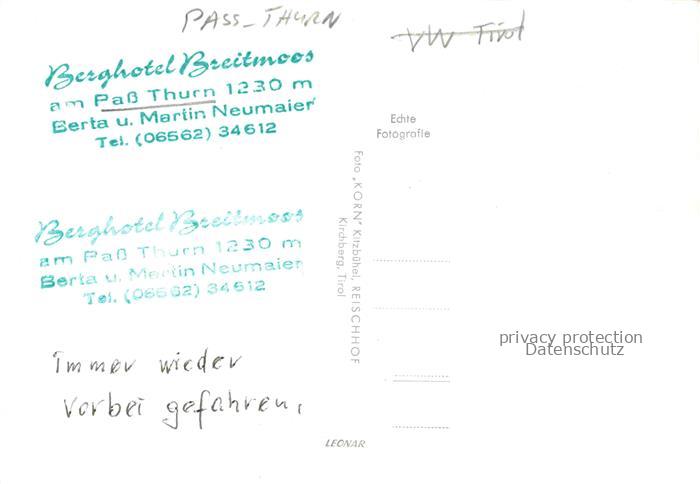 PASS-THURN
VW Tirol
Berghotel Breitmoos
am Paß Thurn 1230 m
Berta u. Martin Neumaier
Tel. (06562) 34612
Echte
Fotografie
Berghotel Breitmoos
am Paß Thurn 1230 m
Berta u. Martin Neumaier
Tel. (06562) 34612
Foto „KORN" Kitzbühel, REISCHHOF
Kirchberg, Tirol
privacy protection
Datenschutz
Immer wieder
vorbei gefahren,
LEONAR